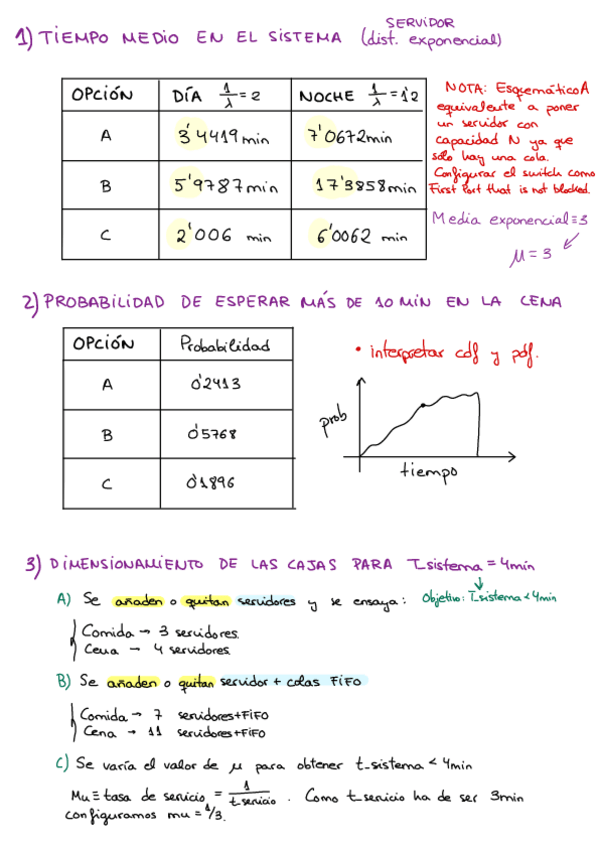 SERVIDOR
1) TIEMPO MEDIO EN EL SISTEMA (dist. exponencial)
OPCIÓN DÍA 1/λ = 2 NOCHE 1/λ = 1'2
A 3'4419 min 7'0672 min
B 5'9787 min 17'3858 min
C 2'006 min 6'0062 min
NOTA: Esquemático A
equivalente a poner
un servidor con
capacidad N ya que
solo hay una cola.
Configurar el switch como
First Port that is not blocked.
Media exponencial ≡ 3
μ = 3
2) PROBABILIDAD DE ESPERAR MÁS DE 10 MIN EN LA CENA
OPCIÓN Probabilidad
A 0'2413
B 0'5768
C 0'1896
• interpretar cdf y pdf.
prob
tiempo
3) DIMENSIONAMIENTO DE LAS CAJAS PARA T_sistema = 4min
A) Se añaden o quitan servidores y se ensaya: Objetivo: T_sistema < 4min
Comida → 3 servidores
Cena → 4 servidores
B) Se añaden o quitan servidor + colas FIFO
Comida → 7 servidores+FIFO
Cena → 11 servidores+FIFO
C) Se varía el valor de μ para obtener t_sistema < 4min
Mu ≡ tasa de servicio = 1/t_servicio . Como t_servicio ha de ser 3min
configuramos mu = 1/3.